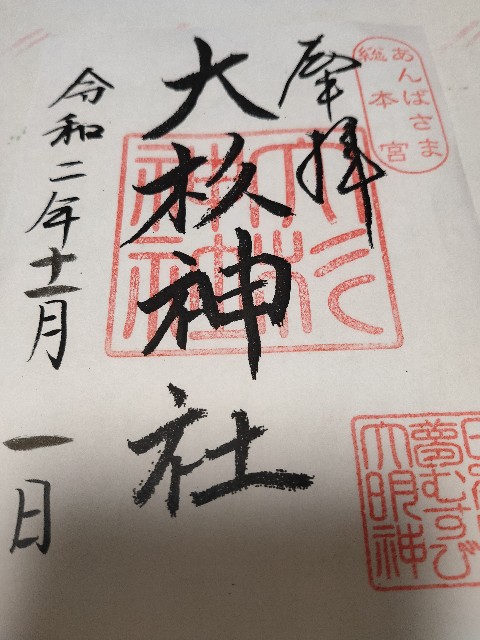 あんばさま
総本宮
奉拝
大杉神社
令和二年十一月一日
大杉
神社
夢むすび
大明神